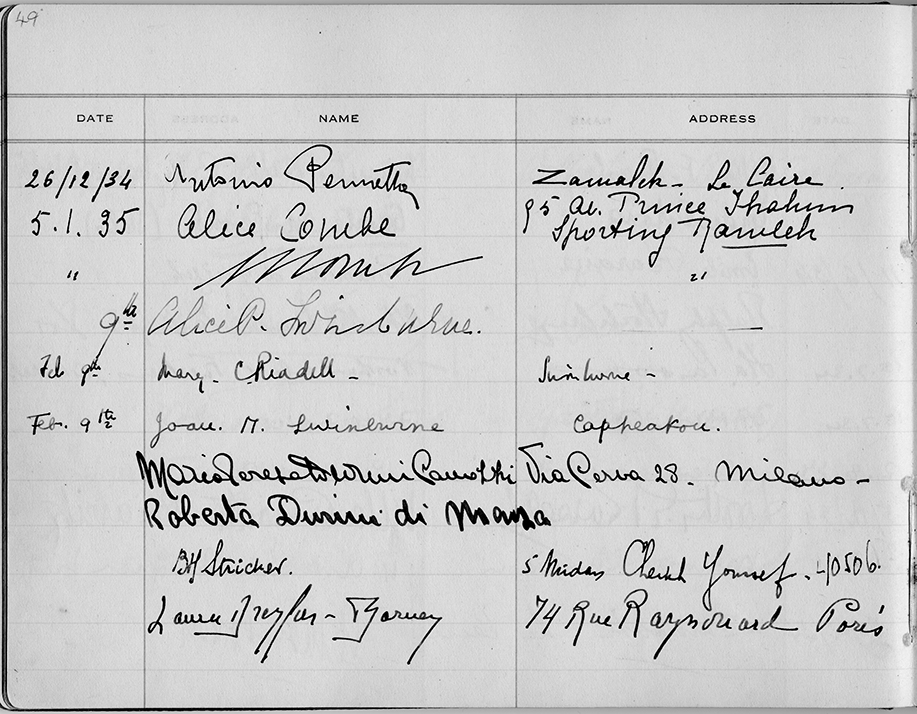 49
DATE NAME ADDRESS
26/12/34 Antonio Pennetta Zamalek - Le Caire.
5.1.35 Alice Combe 95 Av. Prince Ibrahim
Sporting Ramleh
" "
9th Alice P. Swinburne. —
Feb 9th Mary C. Riddell - Swinburne -
Feb. 9th Joan. M. Swinburne Capheaton.
Maria Teresa Durini Via Cerva 28. Milano -
Roberta Durini di Monza
BH Stricker. 5 Midan Cheikh Youssef. 40506.
Laura Dreyfus - Barney 74 Rue Raynouard Paris